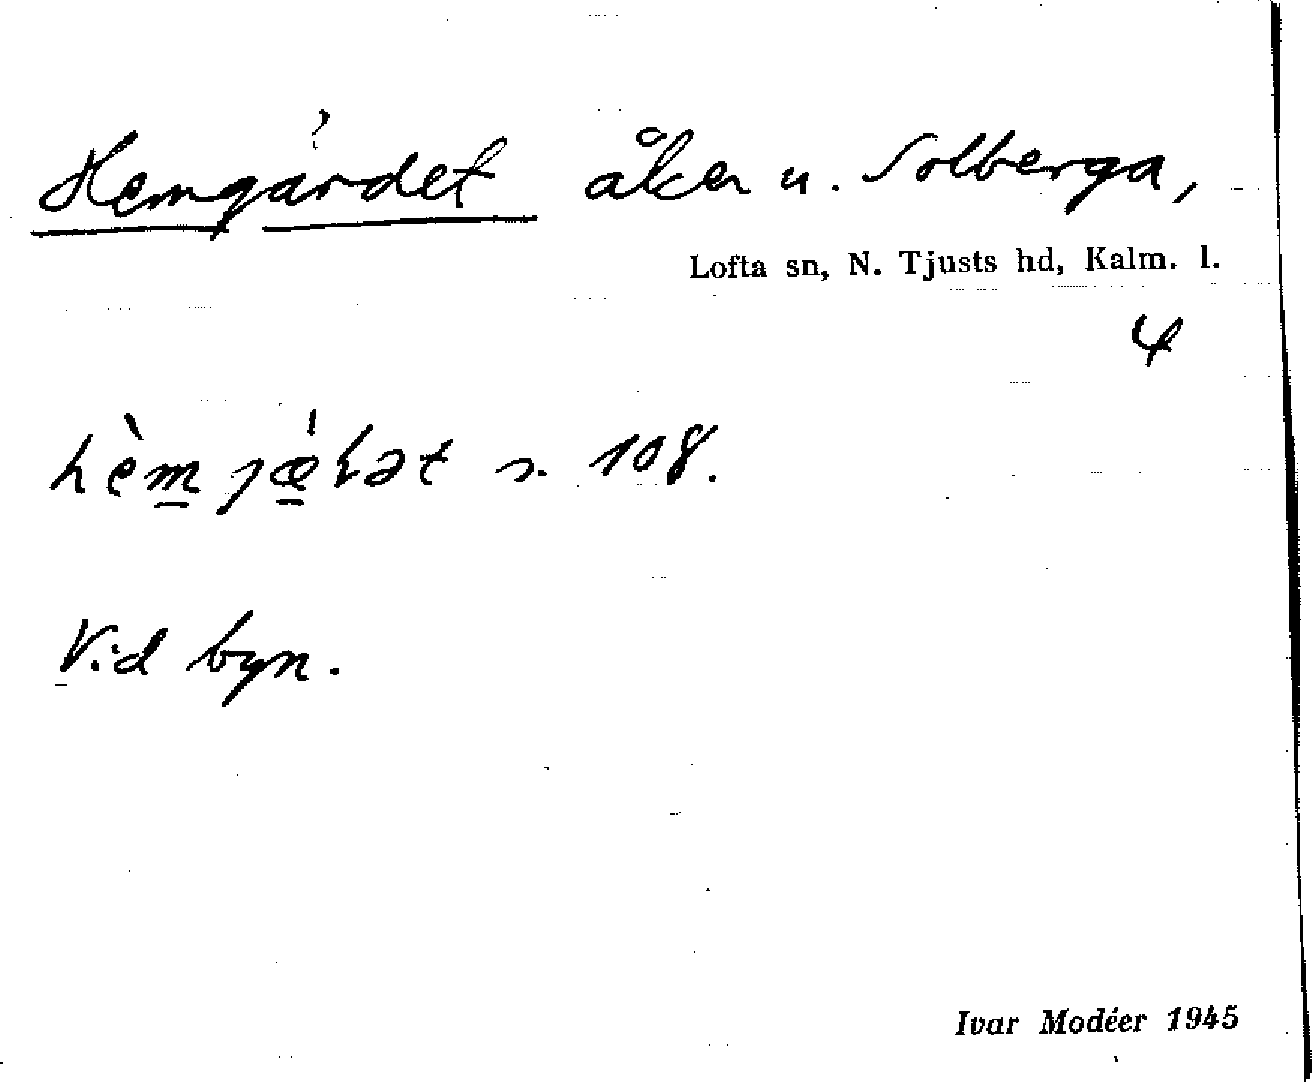 Hemgärdet åker u. Solberga,
Lofta sn, N. Tjusts hd, Kalm. l.
4
s. 108.
Vid byn.
Ivar Modéer 1945